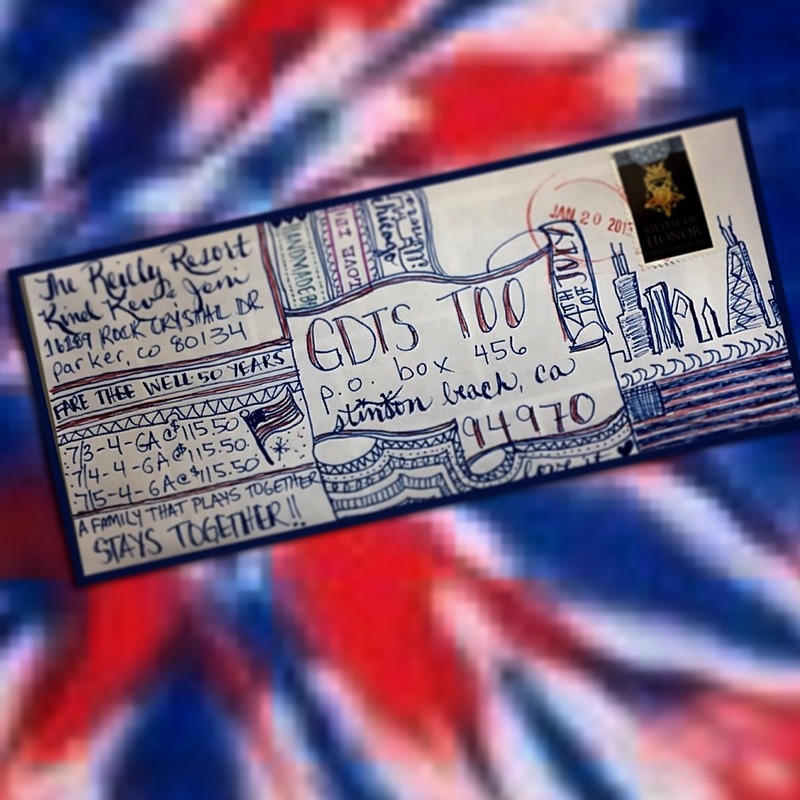 The Reilly Resort
Kind Kev & Jeni
16189 ROCK CRYSTAL DR
parker, co 80134
FARE THEE WELL·50 YEARS
7/3-4-GA@$115.50
7/4-4-GA@$115.50
7/5-4-GA@$115.50
A FAMILY THAT PLAYS TOGETHER
STAYS TOGETHER!!
LOVE
Chicago
JAN 20 201
MEDAL OF
HONOR
JULY
GDTS TOO
p.o. box 456
stinson beach, ca
94970